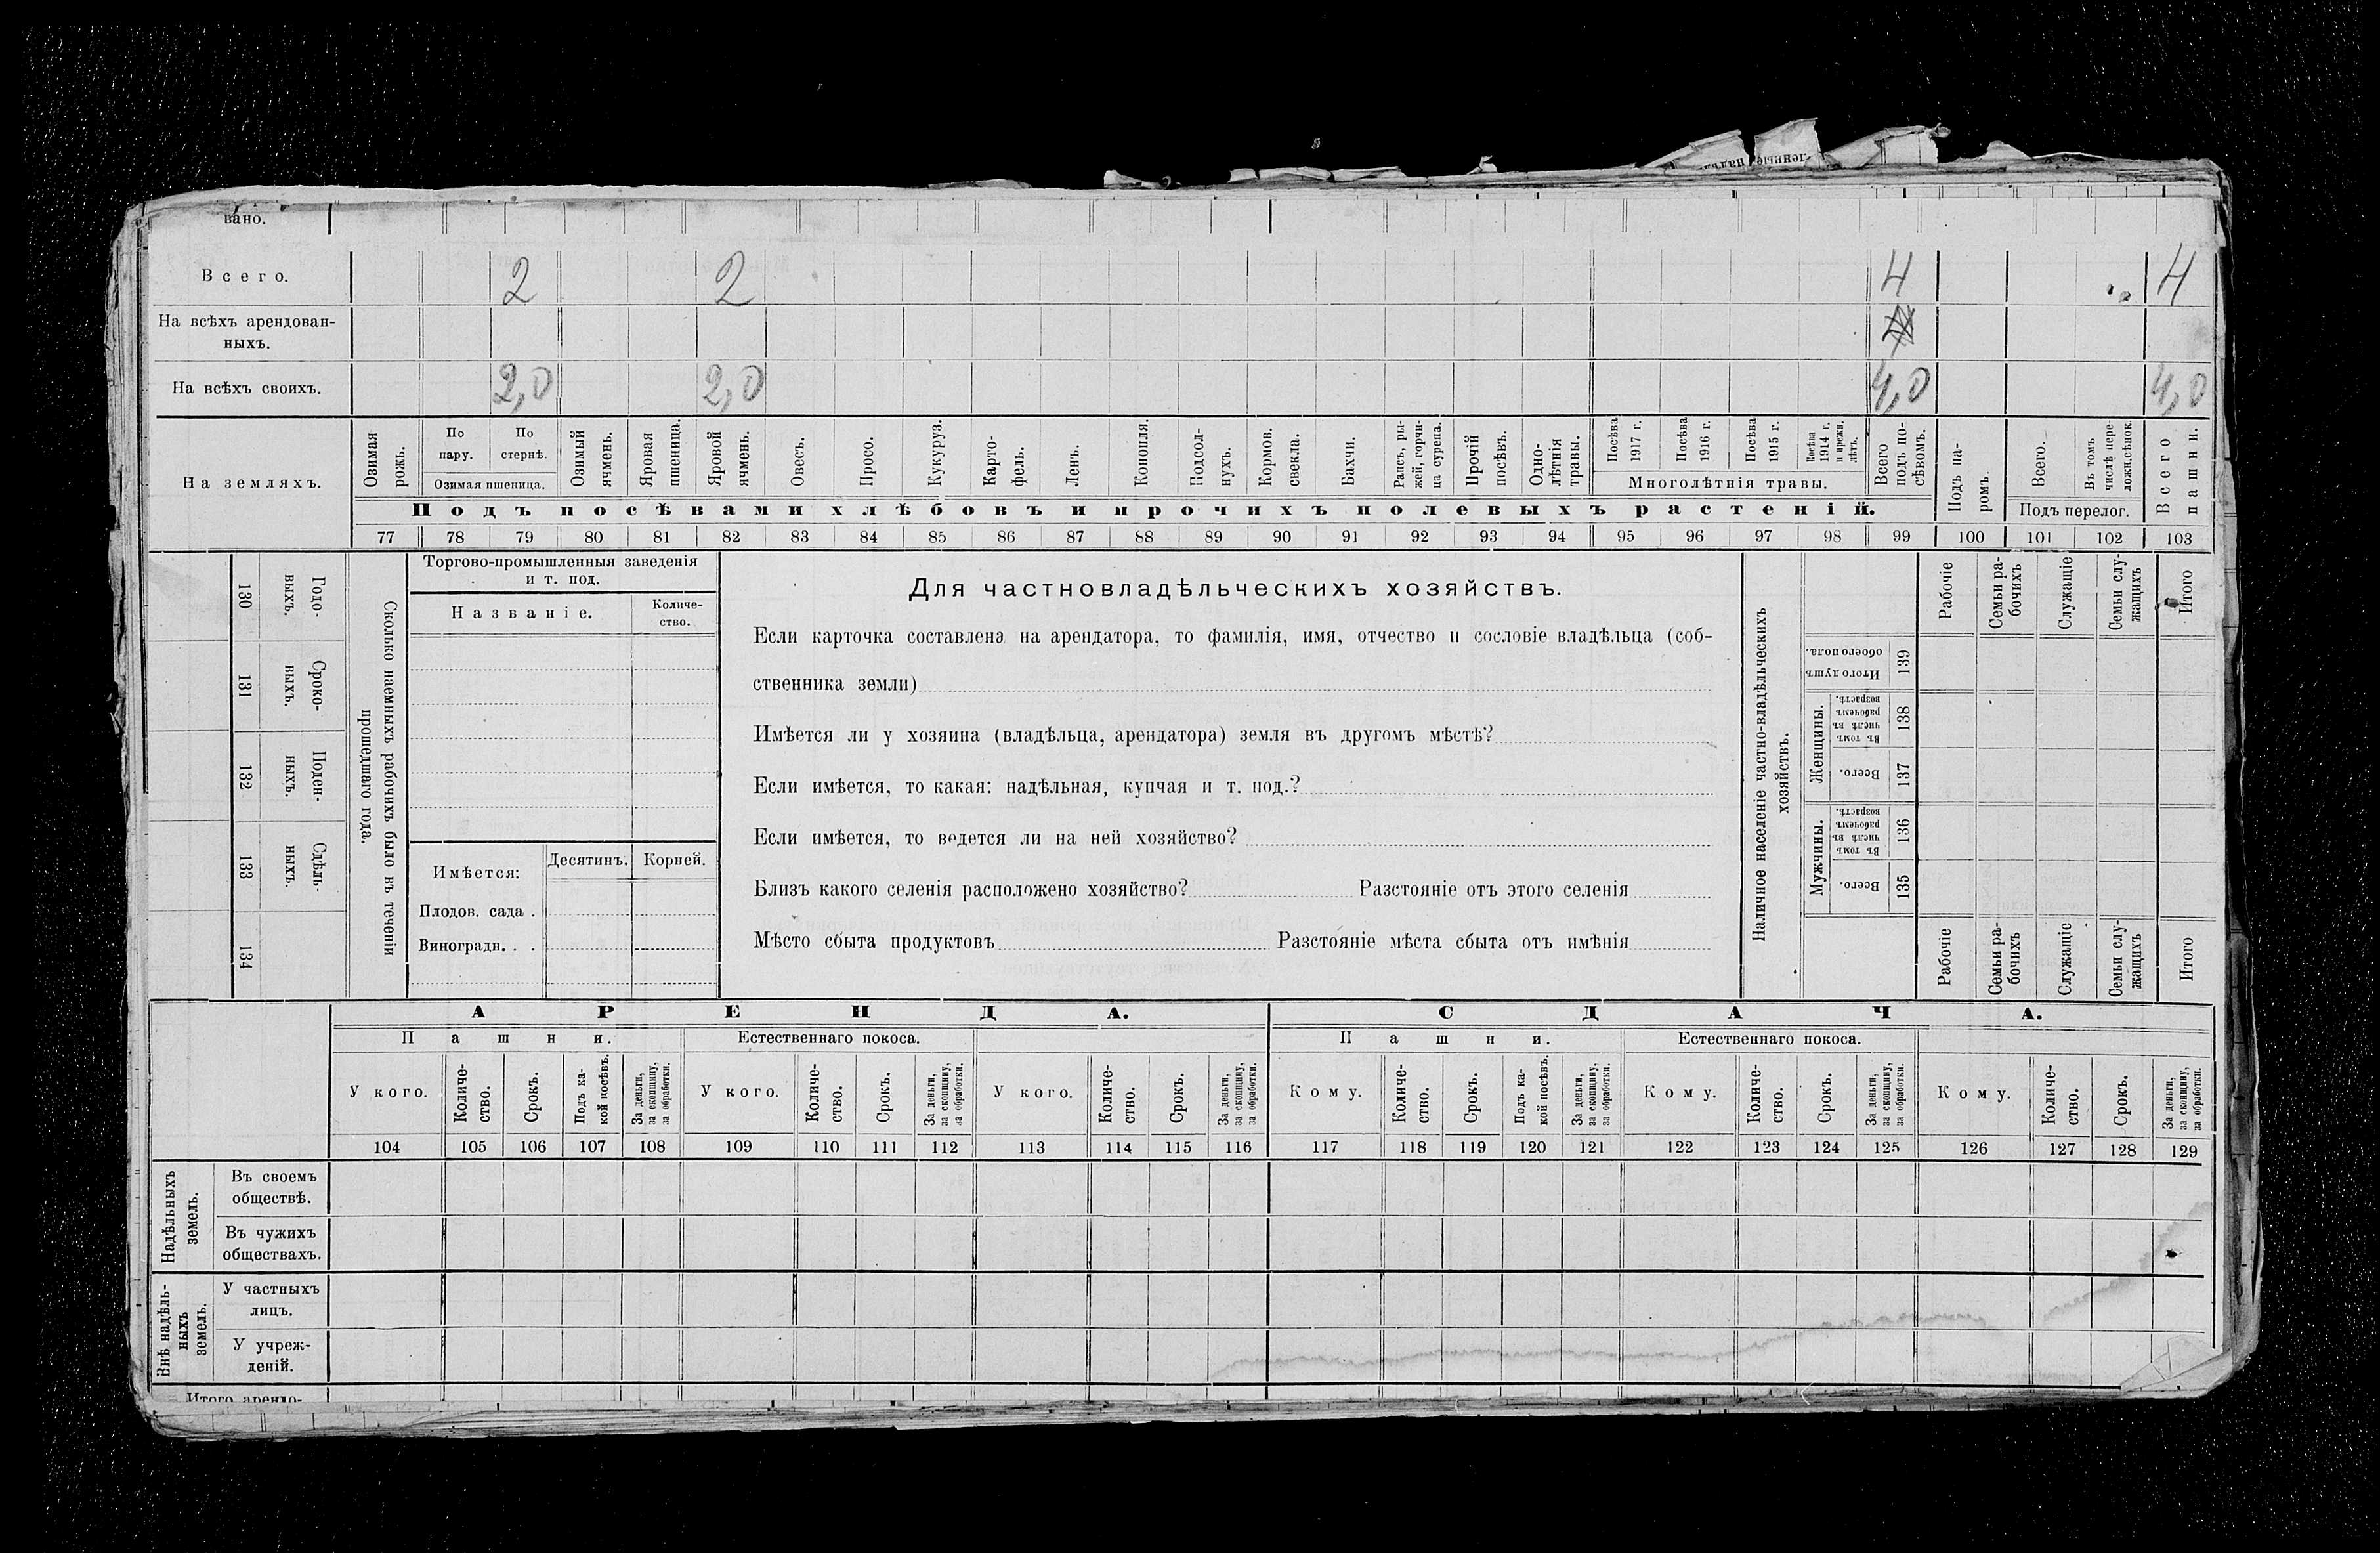 вано.
Всего. 2 2 4 4
На всѣхъ арендован-
ныхъ.
На всѣхъ своихъ. 2,0 2,0 4,0 4,0
На земляхъ.
Озимая рожь.
По пару.
По стернѣ.
Озимая пшеница.
Озимый ячмень.
Яровая пшеница.
Яровой ячмень.
Овесъ.
Просо.
Кукуруз.
Карто-
фель.
Ленъ.
Конопля.
Подсол-
нухъ.
Кормов.
свекла.
Бахчи.
Рапсъ, ры-
жей, горчи-
ца сурепа.
Прочій
посѣвъ.
Одно-
лѣтнія
травы.
Посѣва
1917 г.
Посѣва
1916 г.
Посѣва
1915 г.
Посѣва
1914 г.
и прежн.
лѣтъ.
Многолѣтнія травы.
Всего
подъ по-
сѣвомъ.
Подъ па-
ромъ.
Всего.
Въ томъ
числѣ пере-
ложн.сѣнок.
Подъ перелог.
Всего
пашни.
Подъ посѣвами хлѣбовъ и прочихъ полевыхъ растеній.
77 78 79 80 81 82 83 84 85 86 87 88 89 90 91 92 93 94 95 96 97 98 99 100 101 102 103
130 Годо-
выхъ.
131 Сроко-
выхъ.
132 Поден-
ныхъ.
133 Сдѣль-
ныхъ.
134
Сколько наемныхъ рабочихъ было въ теченіи
прошедшаго года.
Торгово-промышленныя заведенія
и т. под.
Названіе.
Количе-
ство.
Имѣется:
Десятинъ.
Корней.
Плодов. сада .
Виноградн. . .
Для частновладѣльческихъ хозяйствъ.
Если карточка составлена на арендатора, то фамилія, имя, отчество и сословіе владѣльца (соб-
ственника земли)
Имѣется ли у хозяина (владѣльца, арендатора) земля въ другомъ мѣстѣ?
Если имѣется, то какая: надѣльная, купчая и т. под.?
Если имѣется, то ведется ли на ней хозяйство?
Близъ какого селенія расположено хозяйство? Разстояніе отъ этого селенія
Мѣсто сбыта продуктовъ Разстояніе мѣста сбыта отъ имѣнія
Наличное населеніе частно-владѣльческихъ
хозяйствъ.
Рабочіе
Семьи ра-
бочихъ
Служащіе
Семьи слу-
жащихъ
Итого
Итого душъ
обоего пола.
139
Женщины.
Въ томъ
числѣ въ
рабочемъ
возрастѣ.
138
Всего.
137
Мужчины.
Въ томъ
числѣ въ
рабочемъ
возрастѣ.
136
Всего.
135
Рабочіе
Семьи ра-
бочихъ
Служащіе
Семьи слу-
жащихъ
Итого
АРЕНДА. СДАЧА.
Пашни. Естественнаго покоса. Пашни. Естественнаго покоса.
У кого.
Количе-
ство.
Срокъ.
Подъ ка-
кой посѣвъ.
За деньги,
за скопщину,
за обработки.
У кого.
Количе-
ство.
Срокъ.
За деньги,
за скопщину,
за обработки.
У кого.
Количе-
ство.
Срокъ.
За деньги,
за скопщину,
за обработки.
Кому.
Количе-
ство.
Срокъ.
Подъ ка-
кой посѣвъ.
За деньги,
за скопщину,
за обработки.
Кому.
Количе-
ство.
Срокъ.
За деньги,
за скопщину,
за обработки.
Кому.
Количе-
ство.
Срокъ.
За деньги,
за скопщину,
за обработки.
104 105 106 107 108 109 110 111 112 113 114 115 116 117 118 119 120 121 122 123 124 125 126 127 128 129
Надѣльныхъ
земель.
Въ своемъ
обществѣ.
Въ чужихъ
обществахъ.
Внѣ надѣль-
ныхъ
земель.
У частныхъ
лицъ.
У учреж-
деній.
Итого арендо-